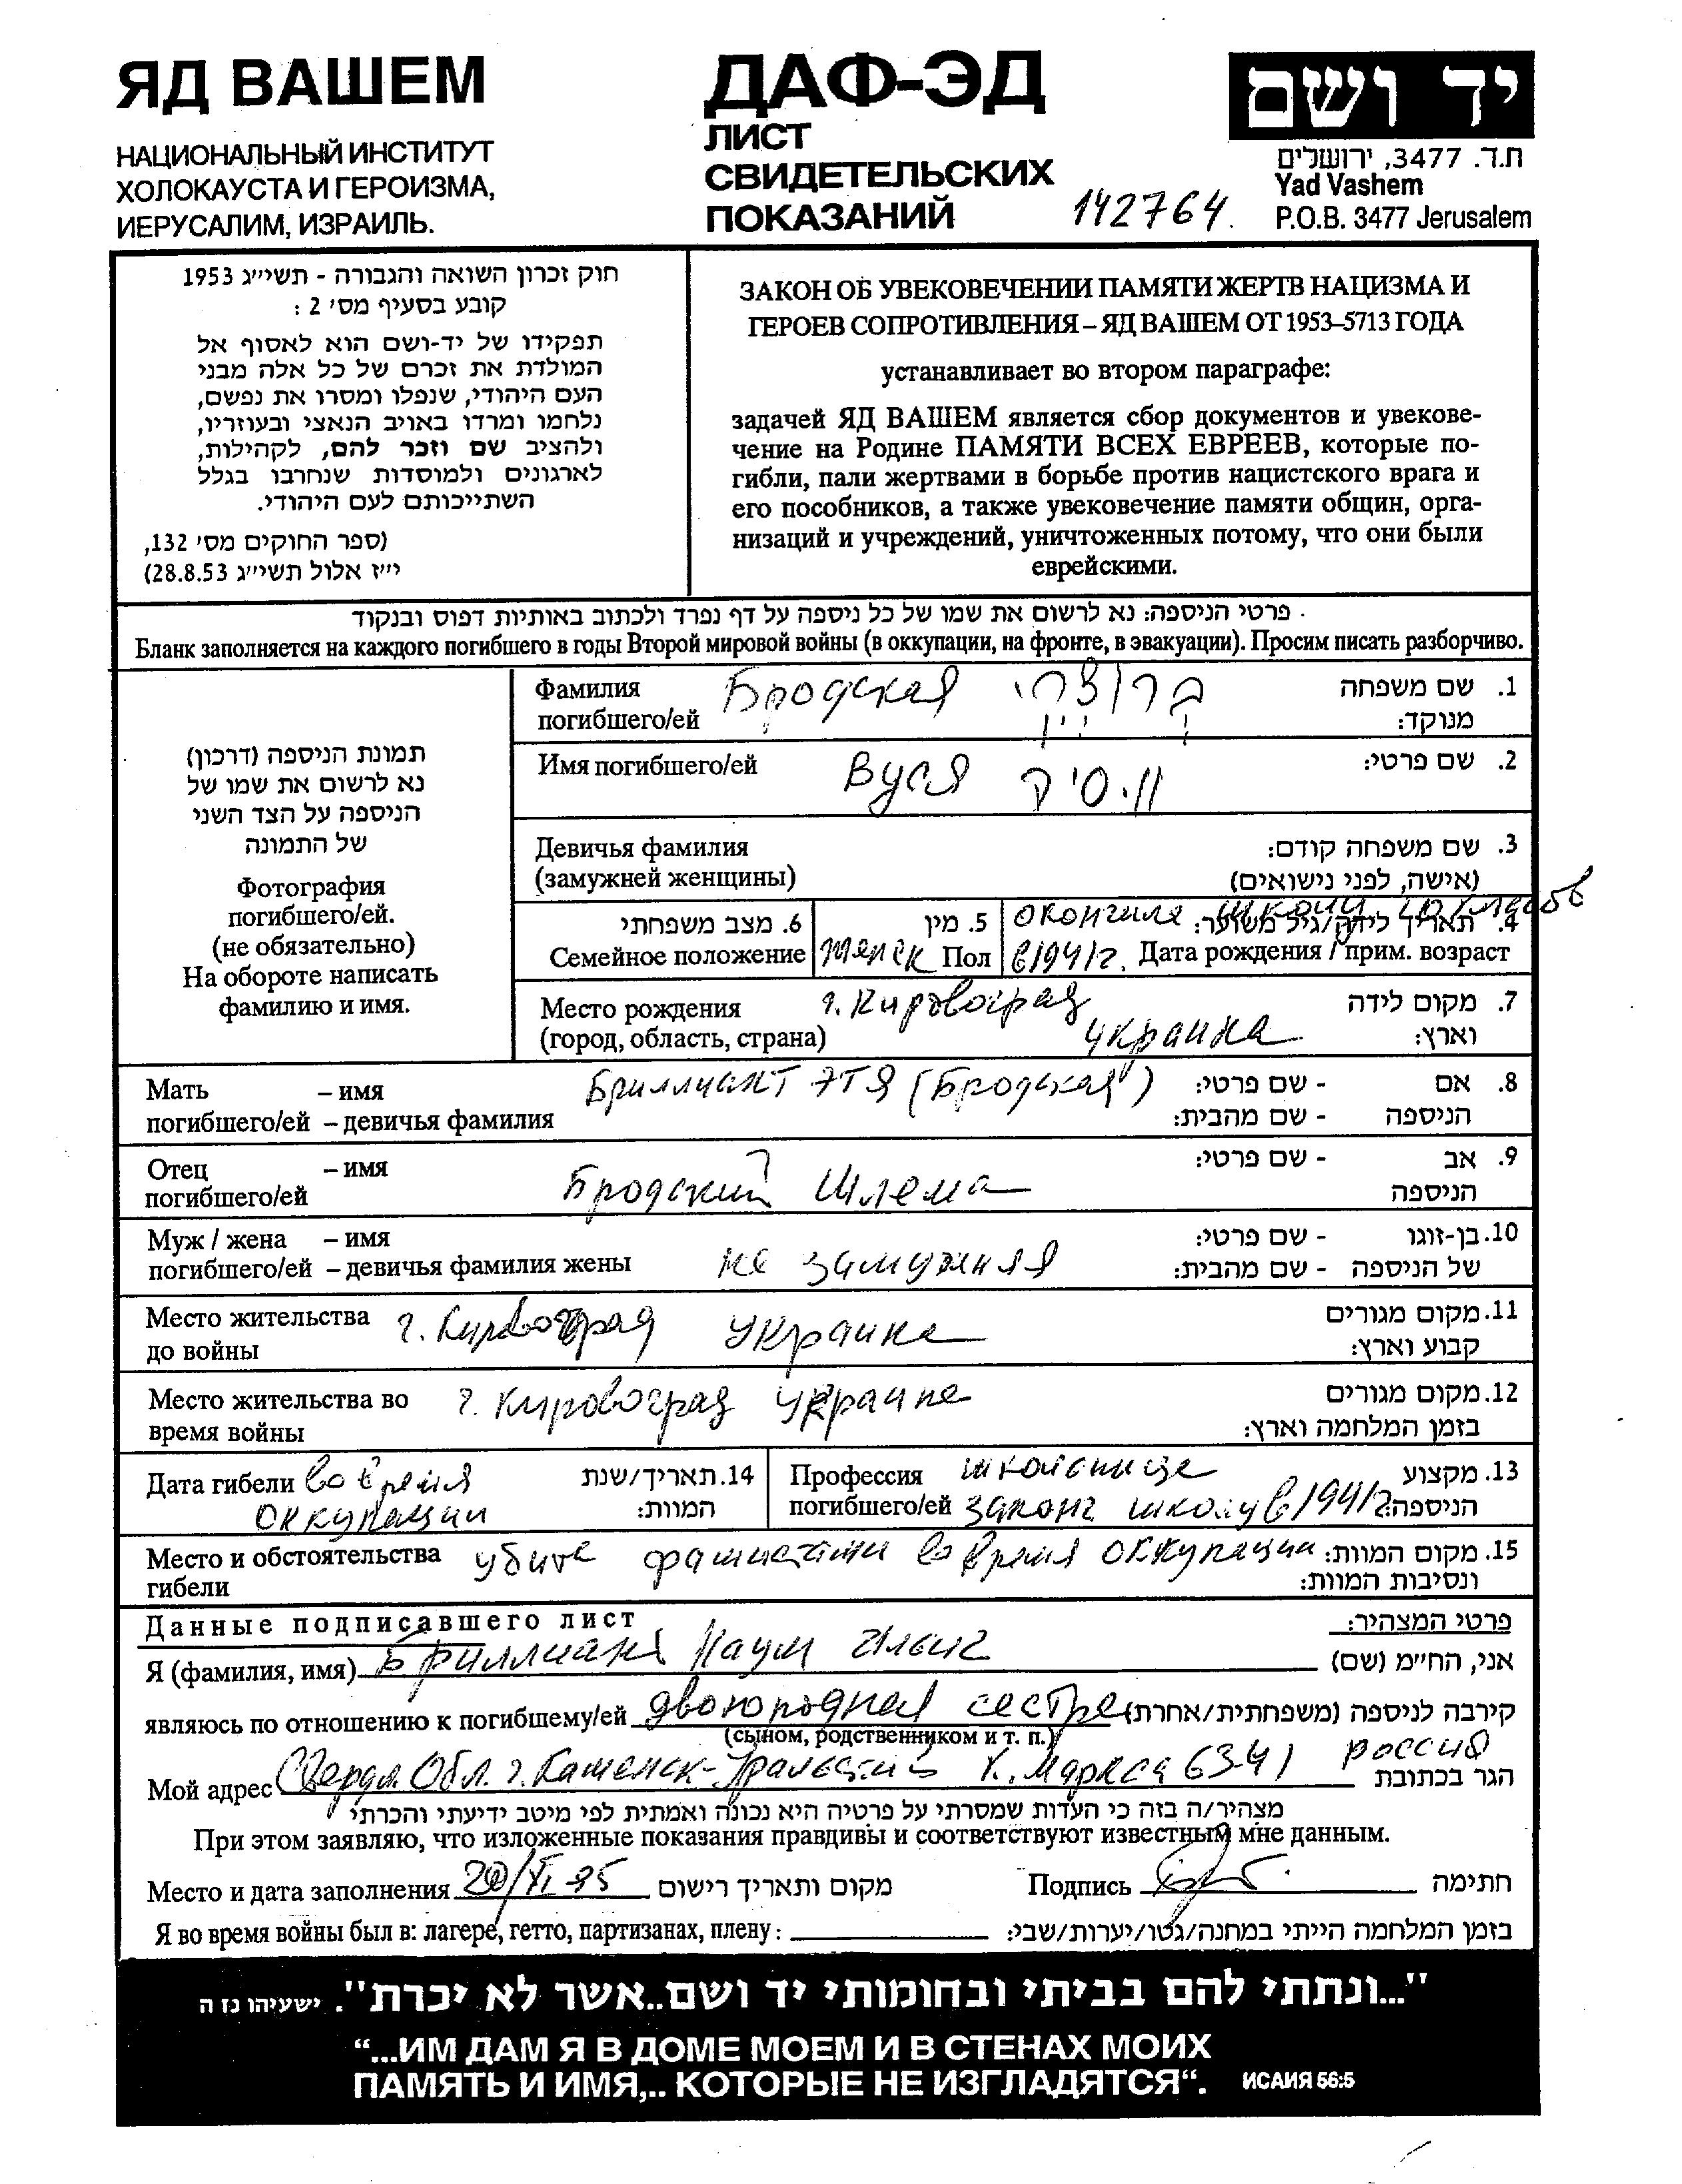 ЯД ВАШЕМ
НАЦИОНАЛЬНЫЙ ИНСТИТУТ
ХОЛОКАУСТА И ГЕРОИЗМА,
ИЕРУСАЛИМ, ИЗРАИЛЬ.
ДАФ-ЭД
ЛИСТ
СВИДЕТЕЛЬСКИХ
ПОКАЗАНИЙ
142764
יד ושם
ת.ד. 3477, ירושלים
Yad Vashem
P.O.B. 3477 Jerusalem
חוק זכרון השואה והגבורה - תשי״ג 1953
קובע בסעיף מס׳ 2 :
תפקידו של יד-ושם הוא לאסוף אל
המולדת את זכרם של כל אלה מבני
העם היהודי, שנפלו ומסרו את נפשם,
נלחמו ומרדו באויב הנאצי ובעוזריו,
ולהציב שם וזכר להם, לקהילות,
לארגונים ולמוסדות שנחרבו בגלל
השתייכותם לעם היהודי.
(ספר החוקים מס׳ 132,
י״ז אלול תשי״ג 28.8.53)
ЗАКОН ОБ УВЕКОВЕЧЕНИИ ПАМЯТИ ЖЕРТВ НАЦИЗМА И
ГЕРОЕВ СОПРОТИВЛЕНИЯ – ЯД ВАШЕМ ОТ 1953–5713 ГОДА
устанавливает во втором параграфе:
задачей ЯД ВАШЕМ является сбор документов и увекове-
чение на Родине ПАМЯТИ ВСЕХ ЕВРЕЕВ, которые по-
гибли, пали жертвами в борьбе против нацистского врага и
его пособников, а также увековечение памяти общин, орга-
низаций и учреждений, уничтоженных потому, что они были
еврейскими.
פרטי הניספה: נא לרשום את שמו של כל ניספה על דף נפרד ולכתוב באותיות דפוס ובנקוד
Бланк заполняется на каждого погибшего в годы Второй мировой войны (в оккупации, на фронте, в эвакуации). Просим писать разборчиво.
תמונת הניספה (דרכון)
נא לרשום את שמו של
הניספה על הצד השני
של התמונה
Фотография
погибшего/ей.
(не обязательно)
На обороте написать
фамилию и имя.
Фамилия Бродская 1. שם משפחה
погибшего/ей מנוקד:
Имя погибшего/ей Вуся 2. שם פרטי:
Девичья фамилия 3. שם משפחה קודם:
(замужней женщины) (אישה, לפני נישואים)
6. מצב משפחתי 5. מין окончила школу 4. תאריך לידה/גיל משוער:
Семейное положение женск Пол в 1941г. Дата рождения / прим. возраст
Место рождения г. Кировоград 7. מקום לידה
(город, область, страна) украина וארץ:
Мать – имя Бриллиант Этя (Бродская) - שם פרטי: 8. אם
погибшего/ей – девичья фамилия - שם מהבית: הניספה
Отец – имя Бродский Шлема - שם פרטי: 9. אב
погибшего/ей הניספה
Муж / жена – имя не замужняя - שם פרטי: 10. בן-זוגו
погибшего/ей – девичья фамилия жены - שם מהבית: של הניספה
Место жительства г. Кировоград украина 11. מקום מגורים
до войны קבוע וארץ:
Место жительства во г. Кировоград украина 12. מקום מגורים
время войны בזמן המלחמה וארץ:
Дата гибели во время 14. תאריך/שנת
оккупации המוות:
Профессия школьница 13. מקצוע
погибшего/ей законч школу в 1941г הניספה:
Место и обстоятельства убита фашистами во время оккупации 15. מקום המוות:
гибели ונסיבות המוות:
Данные подписавшего лист פרטי המצהיר:
Я (фамилия, имя) Бриллиант Наум Ильич אני, הח״מ (שם)
являюсь по отношению к погибшему/ей двоюродная сестра קירבה לניספה (משפחתית/אחרת)
(сыном, родственником и т. п.)
Мой адрес Свердл. Обл. г. Каменск-Уральский К. Маркса 63-41 россия הגר בכתובת
מצהיר/ה בזה כי העדות שמסרתי על פרטיה היא נכונה ואמתית לפי מיטב ידיעתי והכרתי
При этом заявляю, что изложенные показания правдивы и соответствуют известным мне данным.
Место и дата заполнения 20/XI-95 מקום ותאריך רישום Подпись חתימה
Я во время войны был в: лагере, гетто, партизанах, плену: בזמן המלחמה הייתי במחנה/גטו/יערות/שבי:
"...ונתתי להם בביתי ובחומותי יד ושם..אשר לא יכרת". ישעיהו נז ה
“...ИМ ДАМ Я В ДОМЕ МОЕМ И В СТЕНАХ МОИХ
ПАМЯТЬ И ИМЯ,.. КОТОРЫЕ НЕ ИЗГЛАДЯТСЯ“. ИСАИЯ 56:5